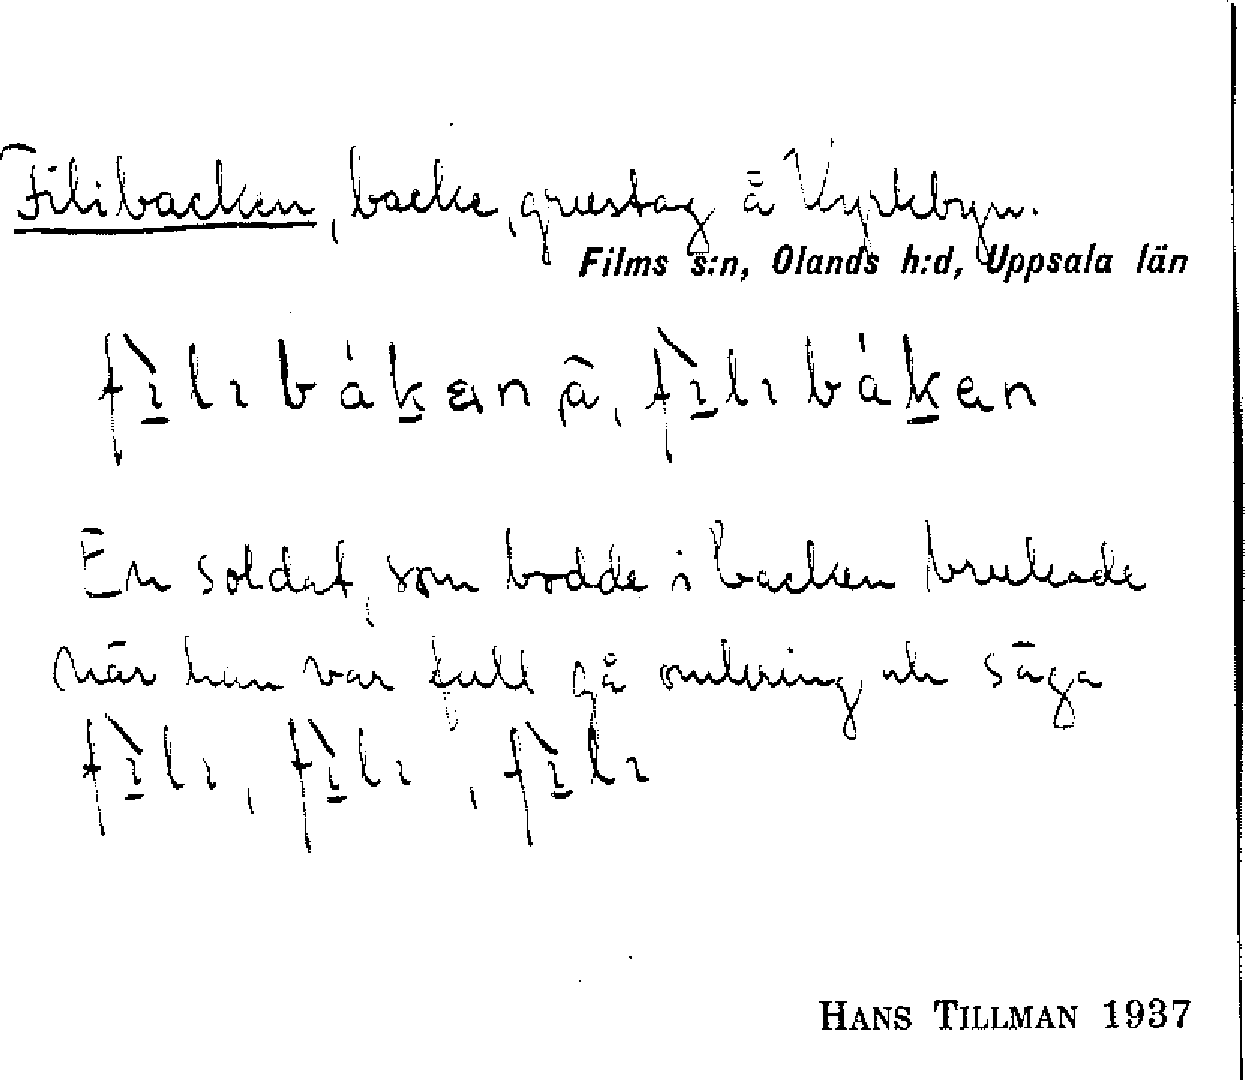 Filibacken, backe, grustag å Kyrkbyn.
Films s:n, Olands h:d, Uppsala län
fı̀lıbákan å, fı̀lıbákan
En soldat, som bodde i backen brukade
när han var full gå omkring och säga
fı̀lı, fı̀lı, fı̀lı
HANS TILLMAN 1937